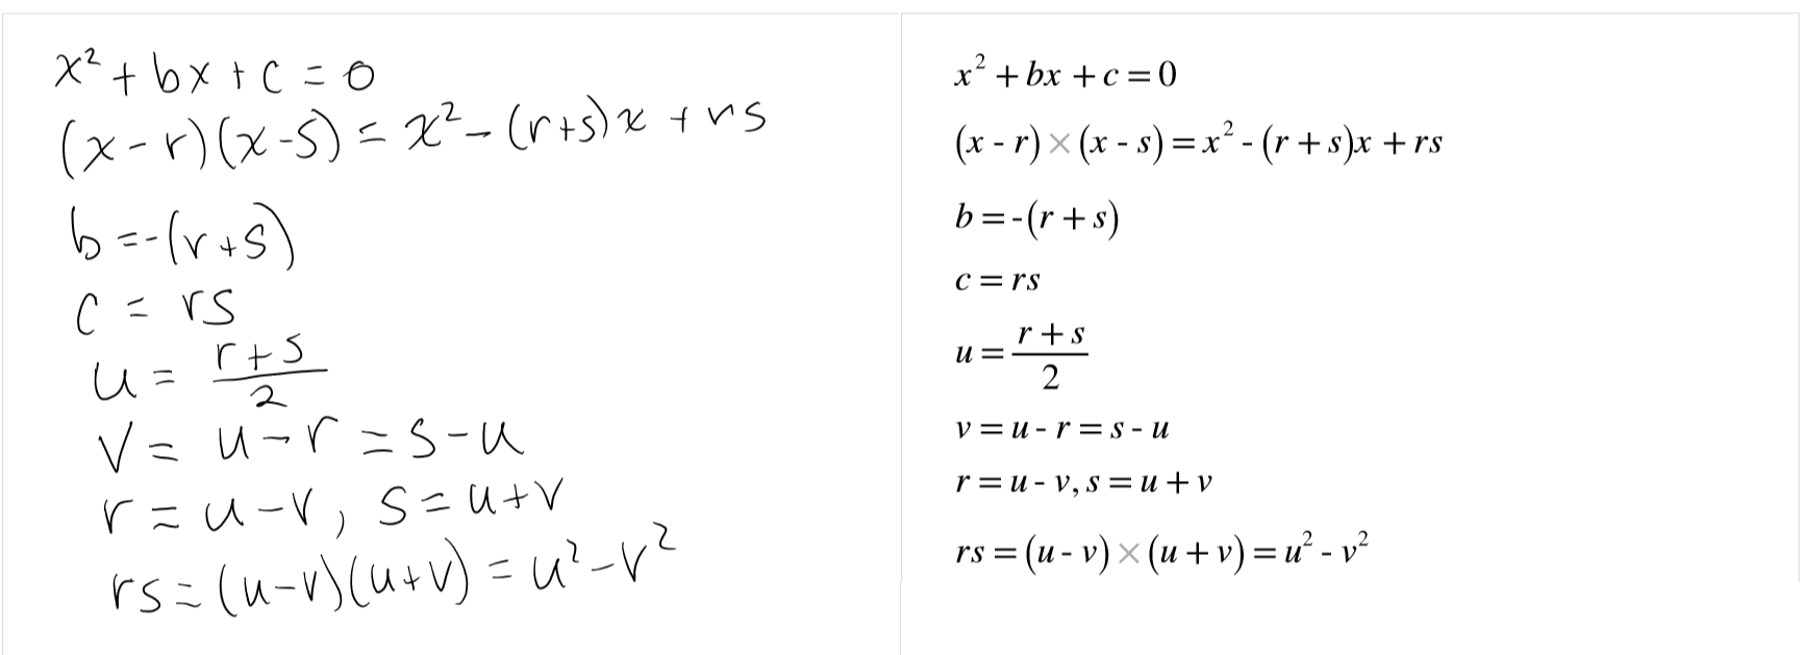 x² + bx + c = 0
(x - r)(x - s) = x² - (r + s)x + rs
b = -(r + s)
c = rs
u = (r + s)/2
v = u - r = s - u
r = u - v, s = u + v
rs = (u - v)(u + v) = u² - v²
x² + bx + c = 0
(x - r) × (x - s) = x² - (r + s)x + rs
b = -(r + s)
c = rs
u = (r + s)/2
v = u - r = s - u
r = u - v, s = u + v
rs = (u - v) × (u + v) = u² - v²